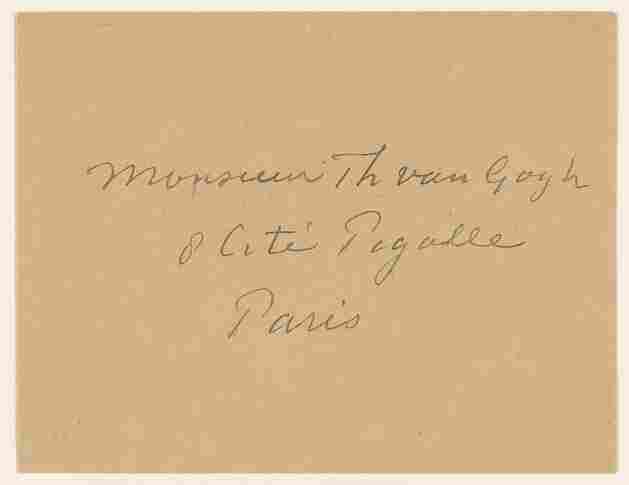 Monsieur Th van Gogh
8 Cité Pigalle
Paris